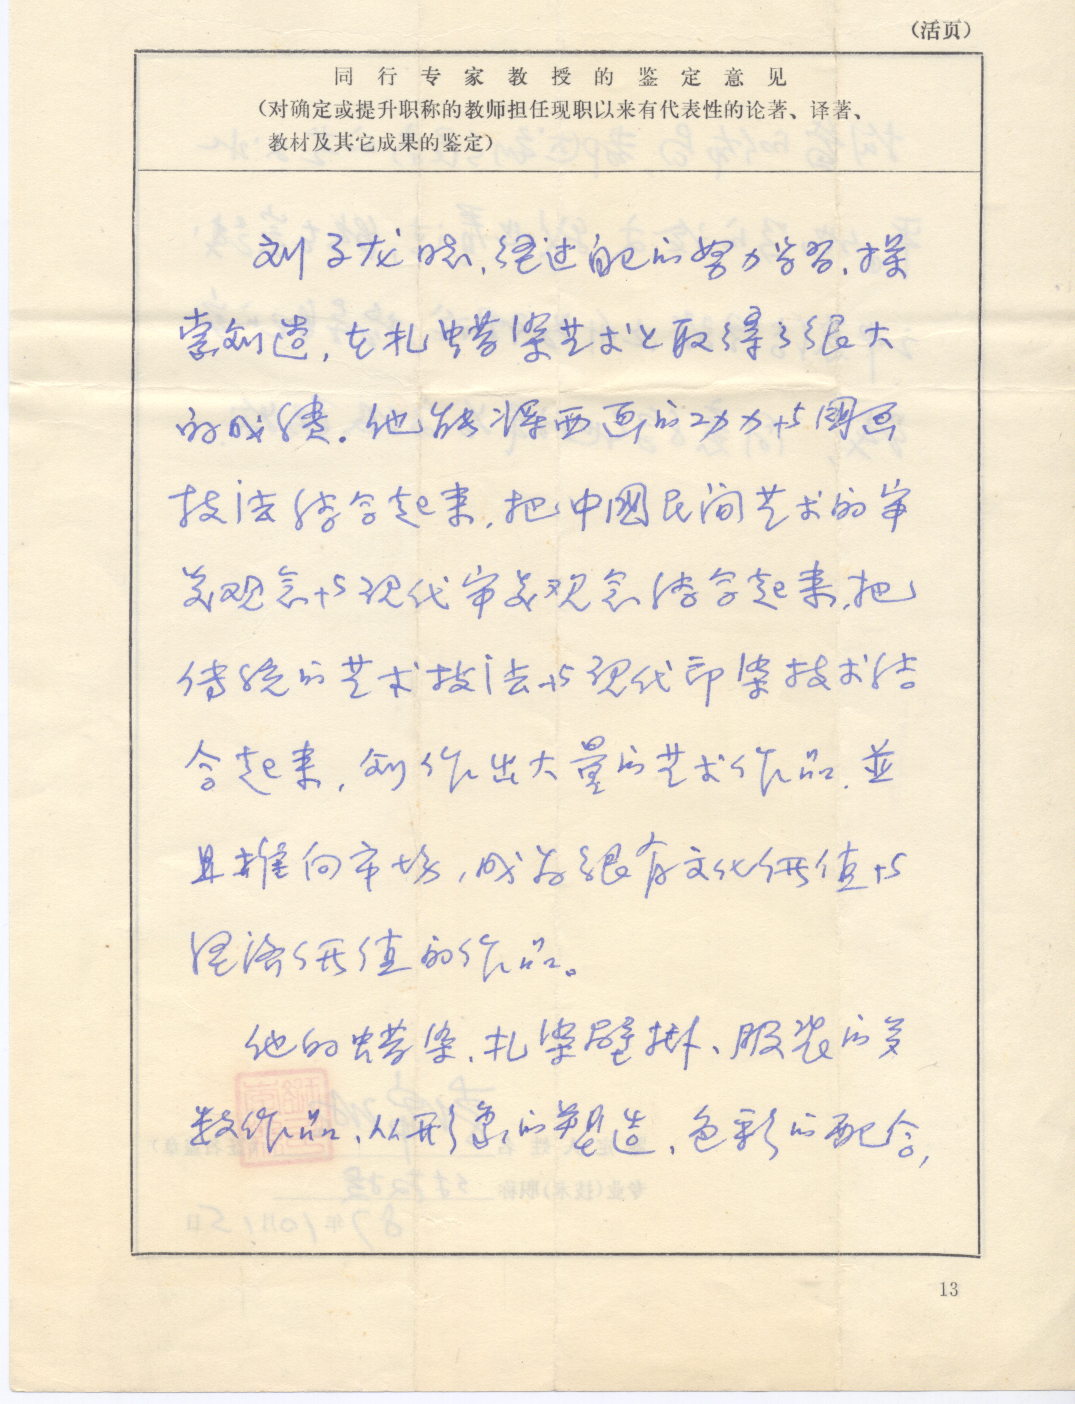 （活页）
同行专家教授的鉴定意见
（对确定或提升职称的教师担任现职以来有代表性的论著、译著、
教材及其它成果的鉴定）
刘子龙同志，经过自己的努力学习，探
索创造，在扎蜡染艺术上取得了很大
的成绩。他能将西画的功力与國画
技法结合起来，把中國民间艺术的审
美观念与现代审美观念结合起来，把
传统的艺术技法与现代印染技术结
合起来，创作出大量的艺术作品，並
且推向市场，成为很有文化价值与
经济价值的作品。
他的蜡染、扎染壁挂、服装的多
数作品，从形象的塑造，色彩的配合，
专业(技术)职称
87年10月15日
13